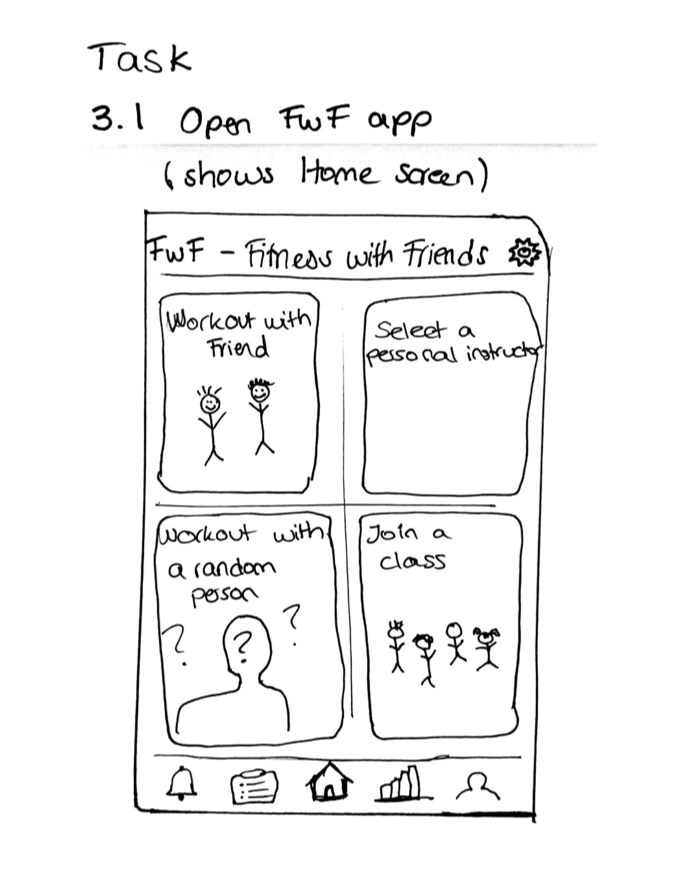 Task
3.1 Open FwF app
(shows Home screen)
FwF - Fitness with Friends
Workout with
Friend
Select a
personal instructor
Workout with
a random
person
? ? ?
Join a
class